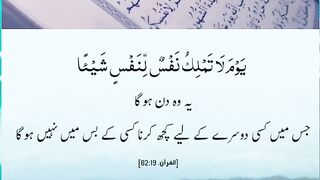 يَوْمَ لَا تَمْلِكُ نَفْسٌ لِّنَفْسٍ شَيْـًٔا
یہ وہ دن ہو گا
جس میں کسی دوسرے کے لیے کچھ کرنا کسی کے بس میں نہیں ہو گا
[القرآن 82:19]